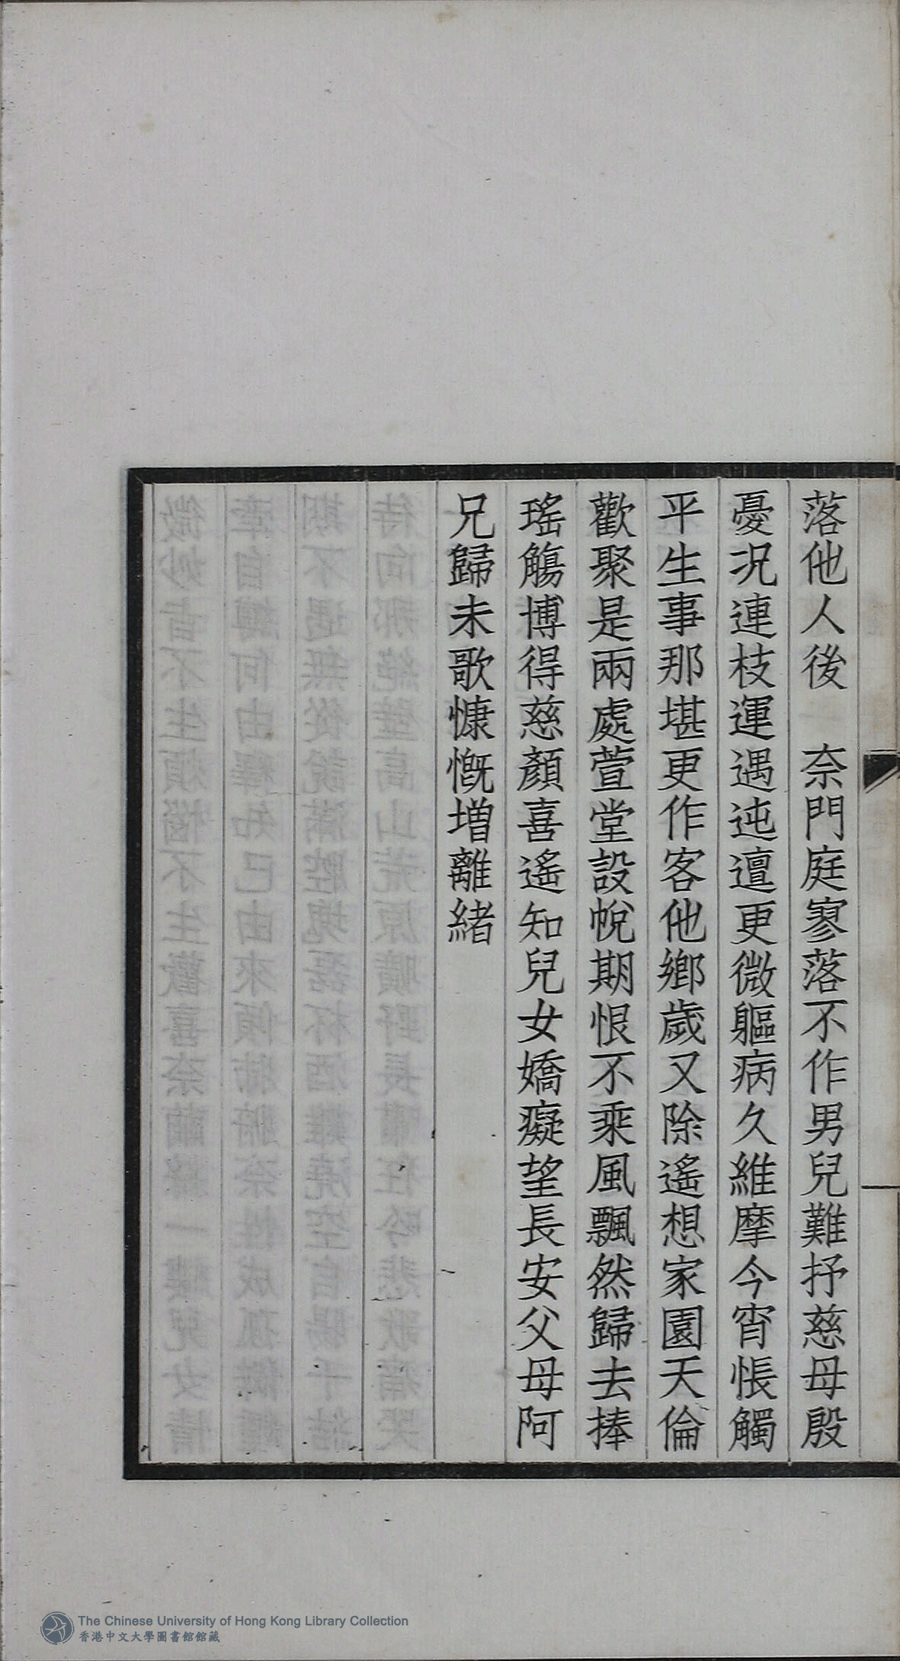 落他人後　奈門庭寥落不作男兒難抒慈母殷
憂况連枝運遇迍邅更微軀病久維摩今宵悵觸
平生事那堪更作客他鄉歲又除遙想家園天倫
歡聚是兩處萱堂設帨期恨不乘風飄然歸去捧
瑤觴博得慈顏喜遙知兒女嬌癡望長安父母阿
兄歸未歌慷慨增離緒
The Chinese University of Hong Kong Library Collection
香港中文大學圖書館館藏